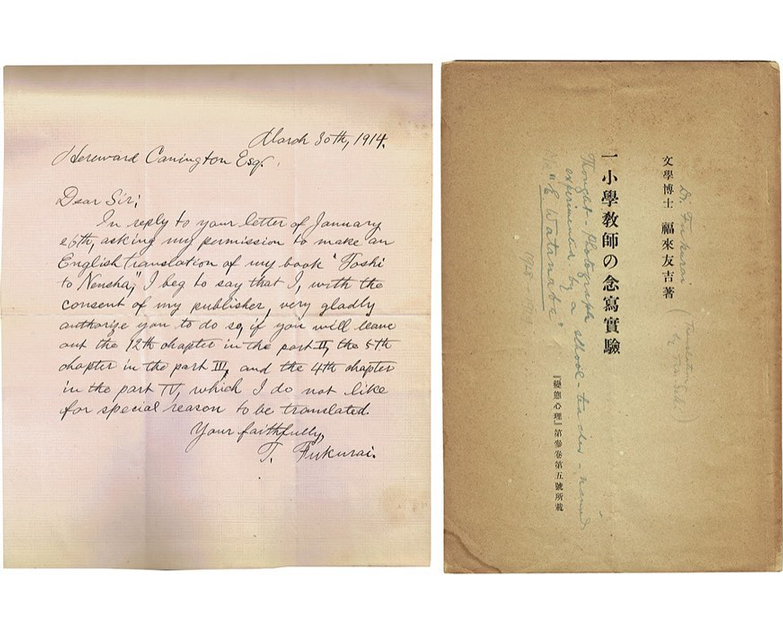 March 30th, 1914.
Hereward Carrington Esq.
Dear Sir;
In reply to your letter of January
26th, asking my permission to make an
English translation of my book "Toshi
to Nensha," I beg to say that I, with the
consent of my publisher, very gladly
authorize you to do so, if you will leave
out the 12th chapter in the part II, the 5th
chapter in the part III, and the 4th chapter
in the part IV, which I do not like
for special reason to be translated.
Your faithfully,
T. Fukurai.
Dr. Fukurai (Translated
by
文學博士 福來友吉著
一小學教師の念寫實驗
Thought-Photograph
experimented by a school-teacher-named
"E. Watanabe"
『變態心理』第參卷第五號所載